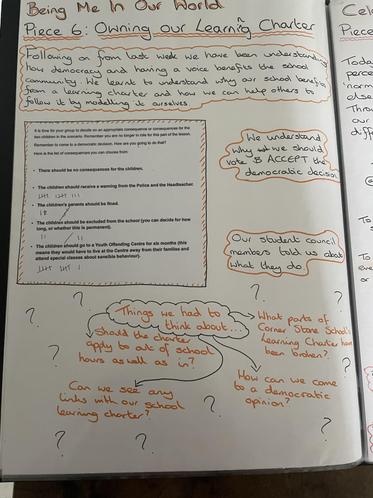 Being Me In Our World
Piece 6: Owning our Learning Charter
Following on from last week we have been understanding
how democracy and having a voice benefits the school
community. We learnt to understand why our school benefits
from a learning charter and how we can help others to
follow it by modelling it ourselves
It is time for your group to decide on an appropriate consequence or consequences for the
ten children in the scenario. Remember you are no longer in role for this part of the lesson.
Remember to come to a democratic decision. How are you going to do that?
Here is the list of consequences you can choose from:
• There should be no consequences for the children.
• The children should receive a warning from the Police and the Headteacher.
• The children's parents should be fined.
• The children should be excluded from the school (you can decide for how
long, or whether this is permanent).
• The children should go to a Youth Offending Centre for six months (this
means they would have to live at the Centre away from their families and
attend special classes about sensible behaviour).
We understand
why we should
vote & ACCEPT the
democratic decision
Our student council
members told us about
what they do.
Things we had to
think about...
Should the charter
apply to out of school
hours as well as in?
What parts of
Corner Stone School's
Learning Charter have
been broken?
Can we see any
links with our school
learning charter?
How can we come
to a democratic
opinion?
? ? ? ? ? ? ? ? ?
Cel
Piece
Toda
perce
'norm
else
Throu
our
diff
To
To